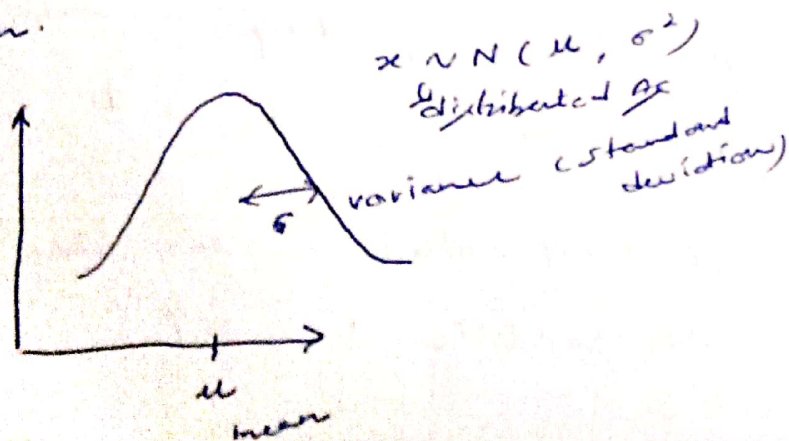 x ~ N ( μ , σ² )
distributed as
variance (standard
deviation)
σ
μ
mean